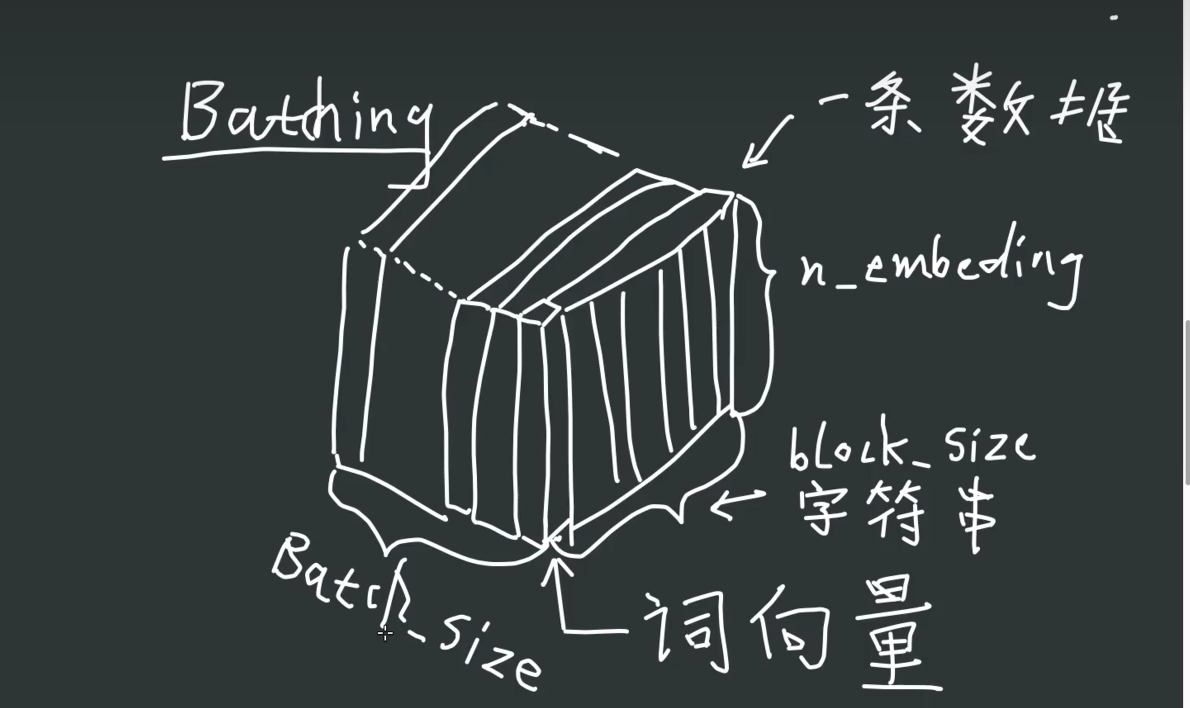 Batching
一条数据
n_embeding
block_size
字符串
Batch_size
词向量